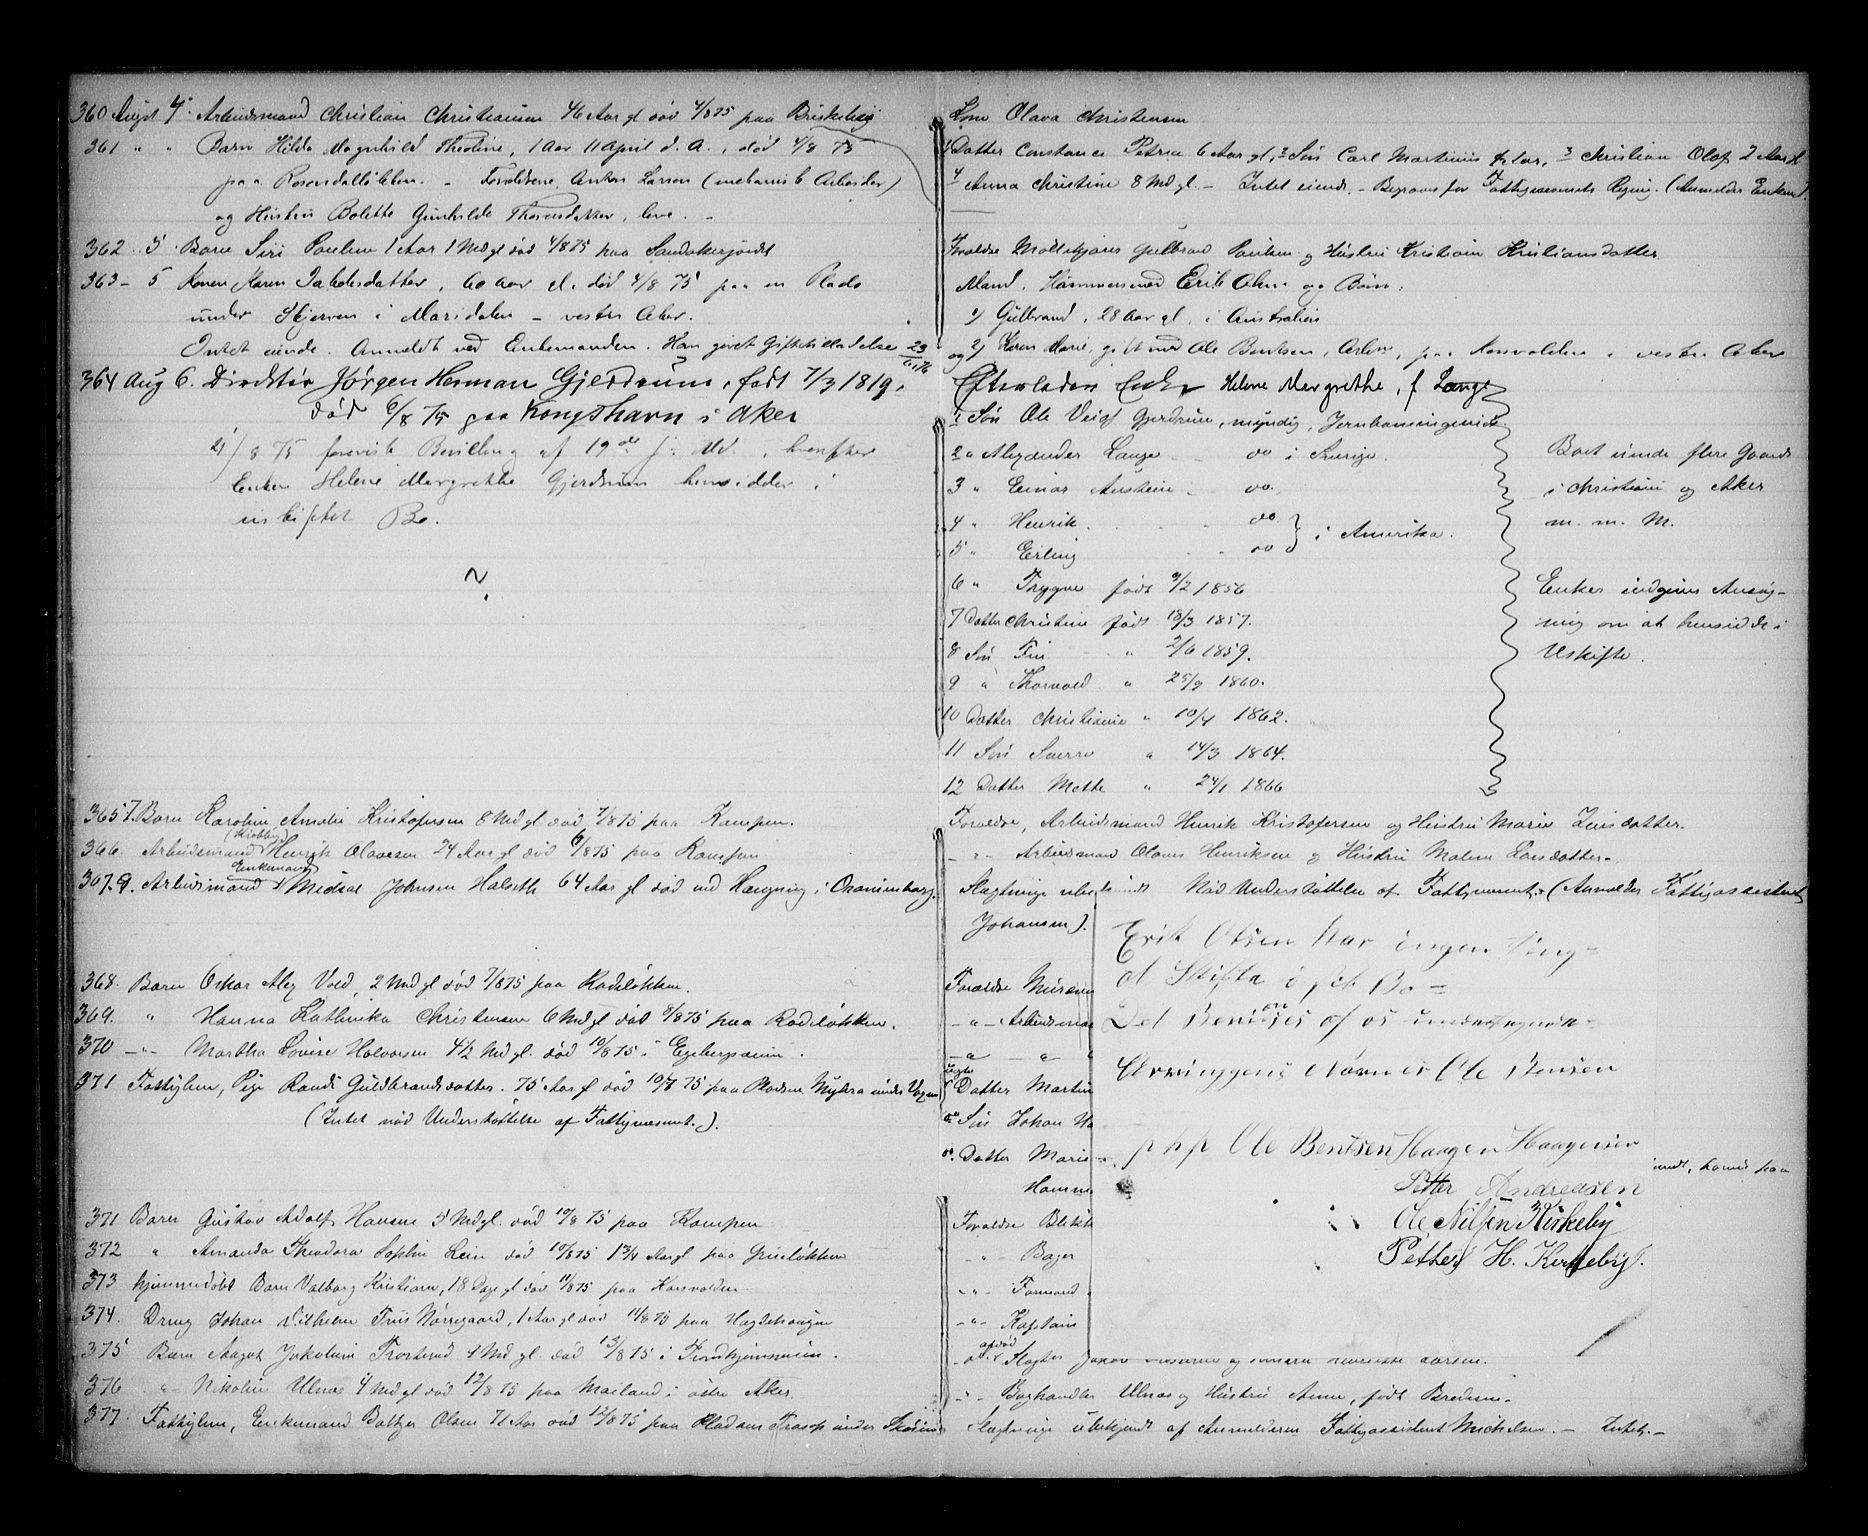 360 August 4. Arbeidsmand Christian Christiansen 46 Aar gl død 4/8 75 paa Briskeby
361 " " Barn Hilda Magnhild Theoline, 1 Aar 11 April d. A., død 4/8 75
paa Rosendalløkken. - Forældrene, Anton Larsen (mekanisk Arbeider)
og Hustru Bolette Gunhilde Thorensdatter, leve. -
362 .. 5. Barn Siri Paulsen 1 Aar 1 Md gl død 4/8 75 paa Sandakerjordet
363 - 5 Konen Karen Jakobsdatter, 60 aar gl. død 4/8 75 paa en Plads
under Skjerven i Maridalen - vestre Aker.
Intet eiende. Anmeldt ved Enkemanden. Ham givet Giftetilladelse 23/
364 Aug 6. Direktør Jørgen Herman Gjerdrum, født 7/3 1819,
død 6/8 75 paa Kongshavn i Aker
21/8 75 forevist Bevilling af 19de f. Md., hvorefter
Enken Helene Margrethe Gjerdrum hensidder i
uskiftet Bo.
365 7. Barn Karoline Amalie Kristofersen 8 Md gl død 7/8 75 paa Kampen.
366. Arbeidsmand Henrik Olavesen 24 Aar gl død 6/8 75 paa Kampen
367. 9. Arbeidsmand Enkemand Michael Johnsen Halseth 64 Aar gl død ved Hængning i Oranienborg.
368. Barn Oskar Alex Vold, 2 Md gl død 7/8 75 paa Rodeløkken.
369. " Hanna Kathinka Christensen 6 Md gl død 8/8 75 paa Rodeløkken.
370 -"- Martha Lovise Halvorsen 4 1/2 Md gl. død 10/8 75 i Egebergveien.
371 Fattiglem, Pige Randi Guldbrandsdatter. 75 Aar gl død 10/8 75 paa Pladsen Myhra under
(Intet nød Understøttelse af Fattigvæsenet.).
371 Barn Gustav Adolf Hansen 5 Md gl. død 10/8 75 paa Kampen
372 " Amanda Theodora Sophie Lein død 10/8 75 1 3/4 Aar gl paa Grünløkken
373 hjemmedøbt Barn Valborg Kristiane, 18 Dage gl død 11/8 75 paa Korsvolden
374. Dreng Johan Vilhelm Friis Nørregaard, 1 Aar gl død 11/8 75 paa Hægdehaugen
375 Barn Aagot Jakobine Frorterud 4 Md gl. død 13/8 75 i Trondhjemsveien.
376 " Nikoline Ulnæs 4 Md gl død 12/8 75 paa Mailand i østre Aker.
377. Fattiglem, Enkemand Baltzer Olsen 71 Aar død 12/8 75 paa Pladsen under
Kone Olava Christensen
1 Datter Constance Petrea 6 Aar gl, 2 Søn Carl Martinius 4 Aar, 3 Christian Olaf 2 Aar gl
4 Anna Christine 8 Md gl. - Intet eiende. - Begraves for Fattigvæsenets Regning. (Anmelder Enken).
Forældre Møllekjører Gulbrand Paulsen og Hustru Kristiane Kristiansdatter
Mand, Hammersmed Erik Olsen og Børn:
1) Gulbrand, 28 Aar gl, i Australien
og 2) Karen Marie, gift med Ole Bentsen, Arb., paa Korsvolden i vestre Aker
Efterladen Enke Helene Margrethe, f. Lange
1 Søn Ole Gjerdrum, myndig, Jernbaneingeniør.
2 " Alexander Lange - - do i Sverige.
3 " Einar Austein - do.
4 " Henrik. - do
5 " Erling - - do } i Amerika.
6 " Trygve født 9/2 1856
7 Datter Christine født 18/3 1857.
8 Søn Fin - " 2/6 1859.
9 " Thorvald " 25/9 1860.
10 Datter Christiane " 10/4 1862.
11 Søn Sverre " 14/3 1864.
12 Datter Mette " 24/1 1866
Boet eiende flere Gaarde
i Christiania og Aker
m. m. M.
Enken indgiver Ansøg-
ning om at hensidde i
Uskifte.
Forældre, Arbeidsmand Henrik Kristofersen og Hustru Marie Jensdatter.
- " - Arbeidsmand Olaves Henriksen og Hustru Malene Larsdatter.
Slægtninge Nød Understøttelse af Fattigvæsenet. (Anmelder Fattigassistent
Johansen).
Erik Olsen har ingen Ting
at Skifte i sit Bo =
Det Bevidnes af os undertegnede
Arvingens Navner Ole Bensen
p p p Ole Bentsen Haagen Haagensen
Petter Andreasen
Ole Nilsen Kirkeby
Petter H. Kirkeby.
Forældre
- " - Arbeidsmand
- " - "
Datter Martin
do Søn Johan
do. Datter Marie
Hamm
Forældre Blikk
- " - Bager
- " - Formand
- " - Kaptein
afdød
- " - Bøghandler Ulnæs og Hustru Anne, født Bredesen.
Slægtninge ubekjendt af Anmelderen Fattigassistent Michelsen. - Intet. -